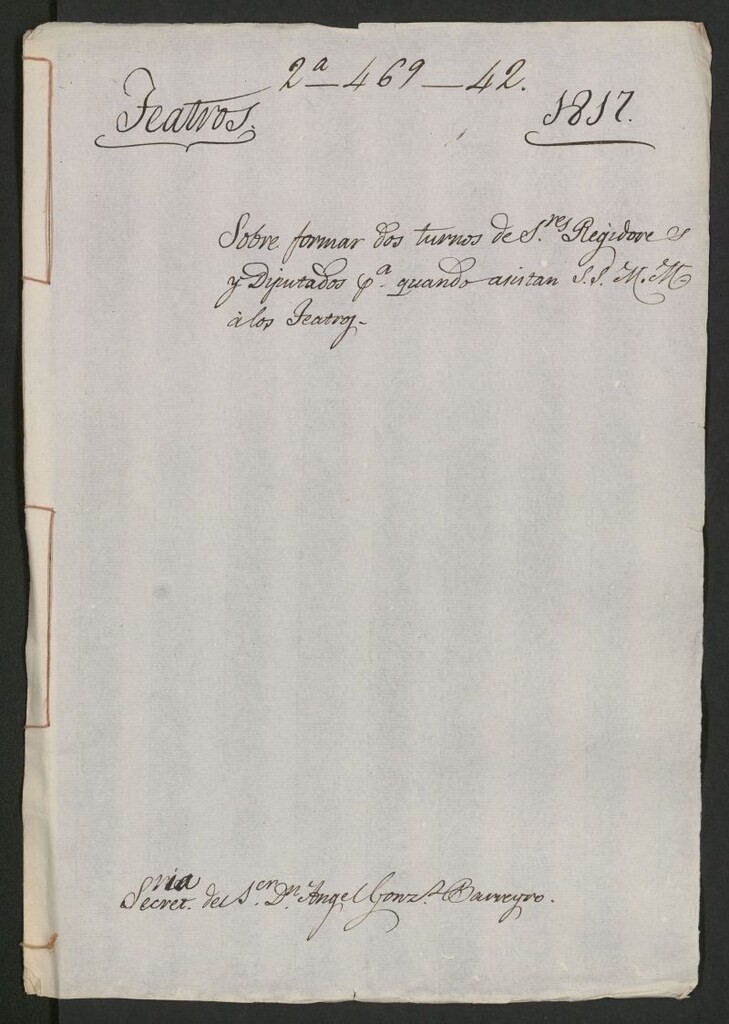 2ª-469-42.
Teatros.
1817.
Sobre formar dos turnos de S.res Regidores
y Diputados p.ª quando asistan S.S. M.M
à los Teatros-
Secret.ria del S.or D.n Angel Gonz.z Barreyro.